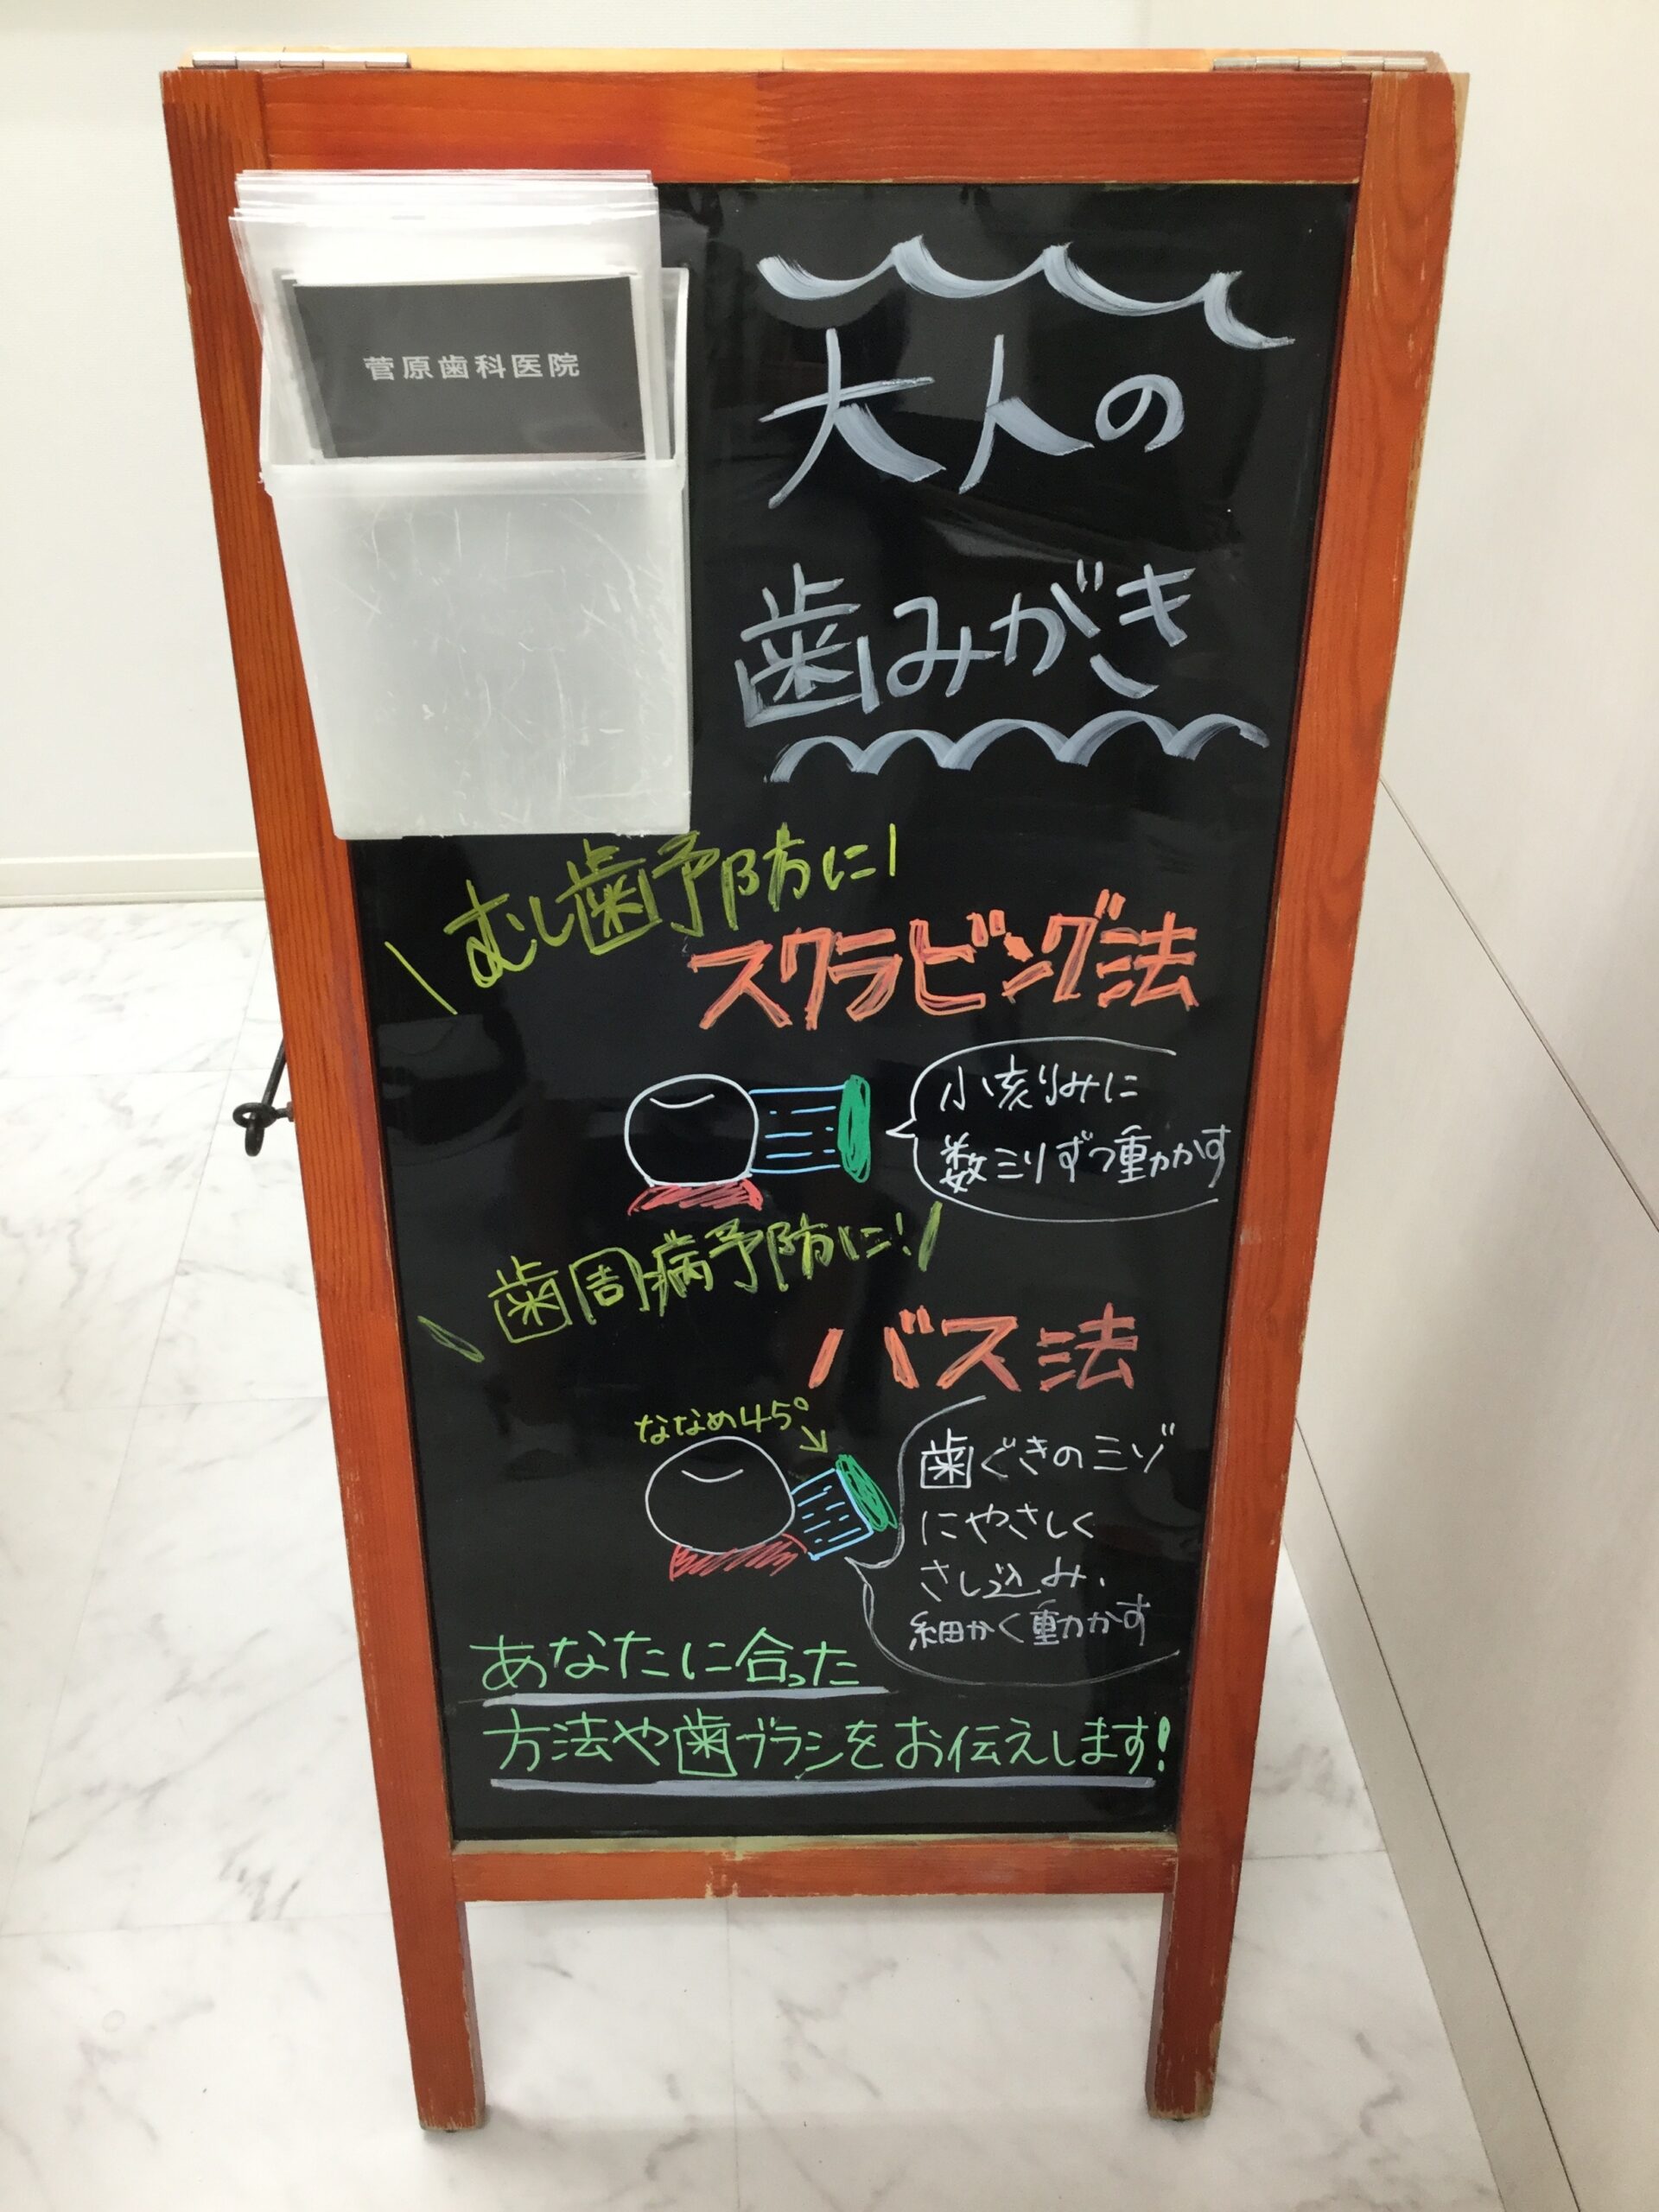 菅原歯科医院
大人の
歯みがき
むし歯予防に!
スクラビング法
小刻みに
数ミリずつ動かす
歯周病予防に!
バス法
ななめ45°
歯ぐきのミゾ
にやさしく
さし込み、
細かく動かす
あなたに合った
方法や歯ブラシをお伝えします!